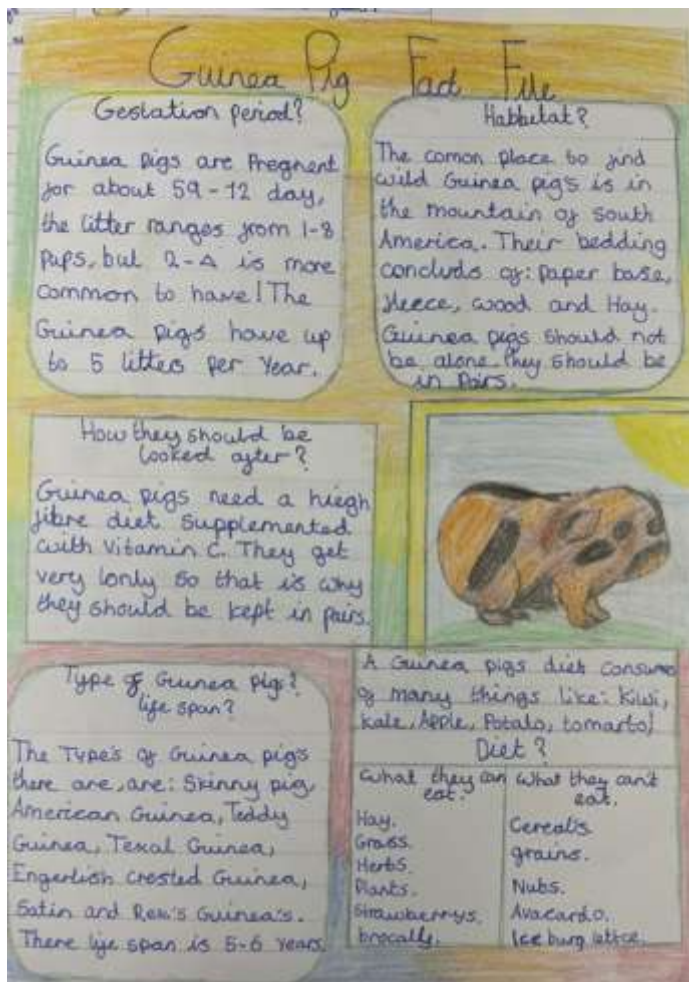 Guinea Pig Fact File
Gestation period?
Guinea pigs are Pregnent
for about 59-72 day,
the litter ranges from 1-8
pups, but 2-4 is more
common to have! The
Guinea pigs have up
to 5 litters per Year.
Habbitat?
The comon place to find
wild Guinea pigs is in
the mountain of south
America. Their bedding
concluds of: paper base,
fleece, wood and Hay.
Guinea pigs should not
be alone, they should be
in Pairs.
How they should be
looked after?
Guinea pigs need a hiegh
fibre diet supplemented
with Vitamin C. They get
very lonly so that is why
they should be kept in pairs.
Type of Guinea pigs?
life span?
The Type's of Guinea pigs
there are, are: Skinny pig,
American Guinea, Teddy
Guinea, Texal Guinea,
Engerlish crested Guinea,
Satin and Rex's Guinea's.
There life span is 5-6 years.
A Guinea pigs diet consumes
of many things like: Kiwi,
kale, Apple, Potato, tomarto!
Diet?
What they can
eat.
Hay.
Grass.
Herbs.
Plants.
Strawberrys.
brocally.
What they can't
eat.
Cereals.
grains.
Nuts.
Avacardo.
Ice burg lettce.